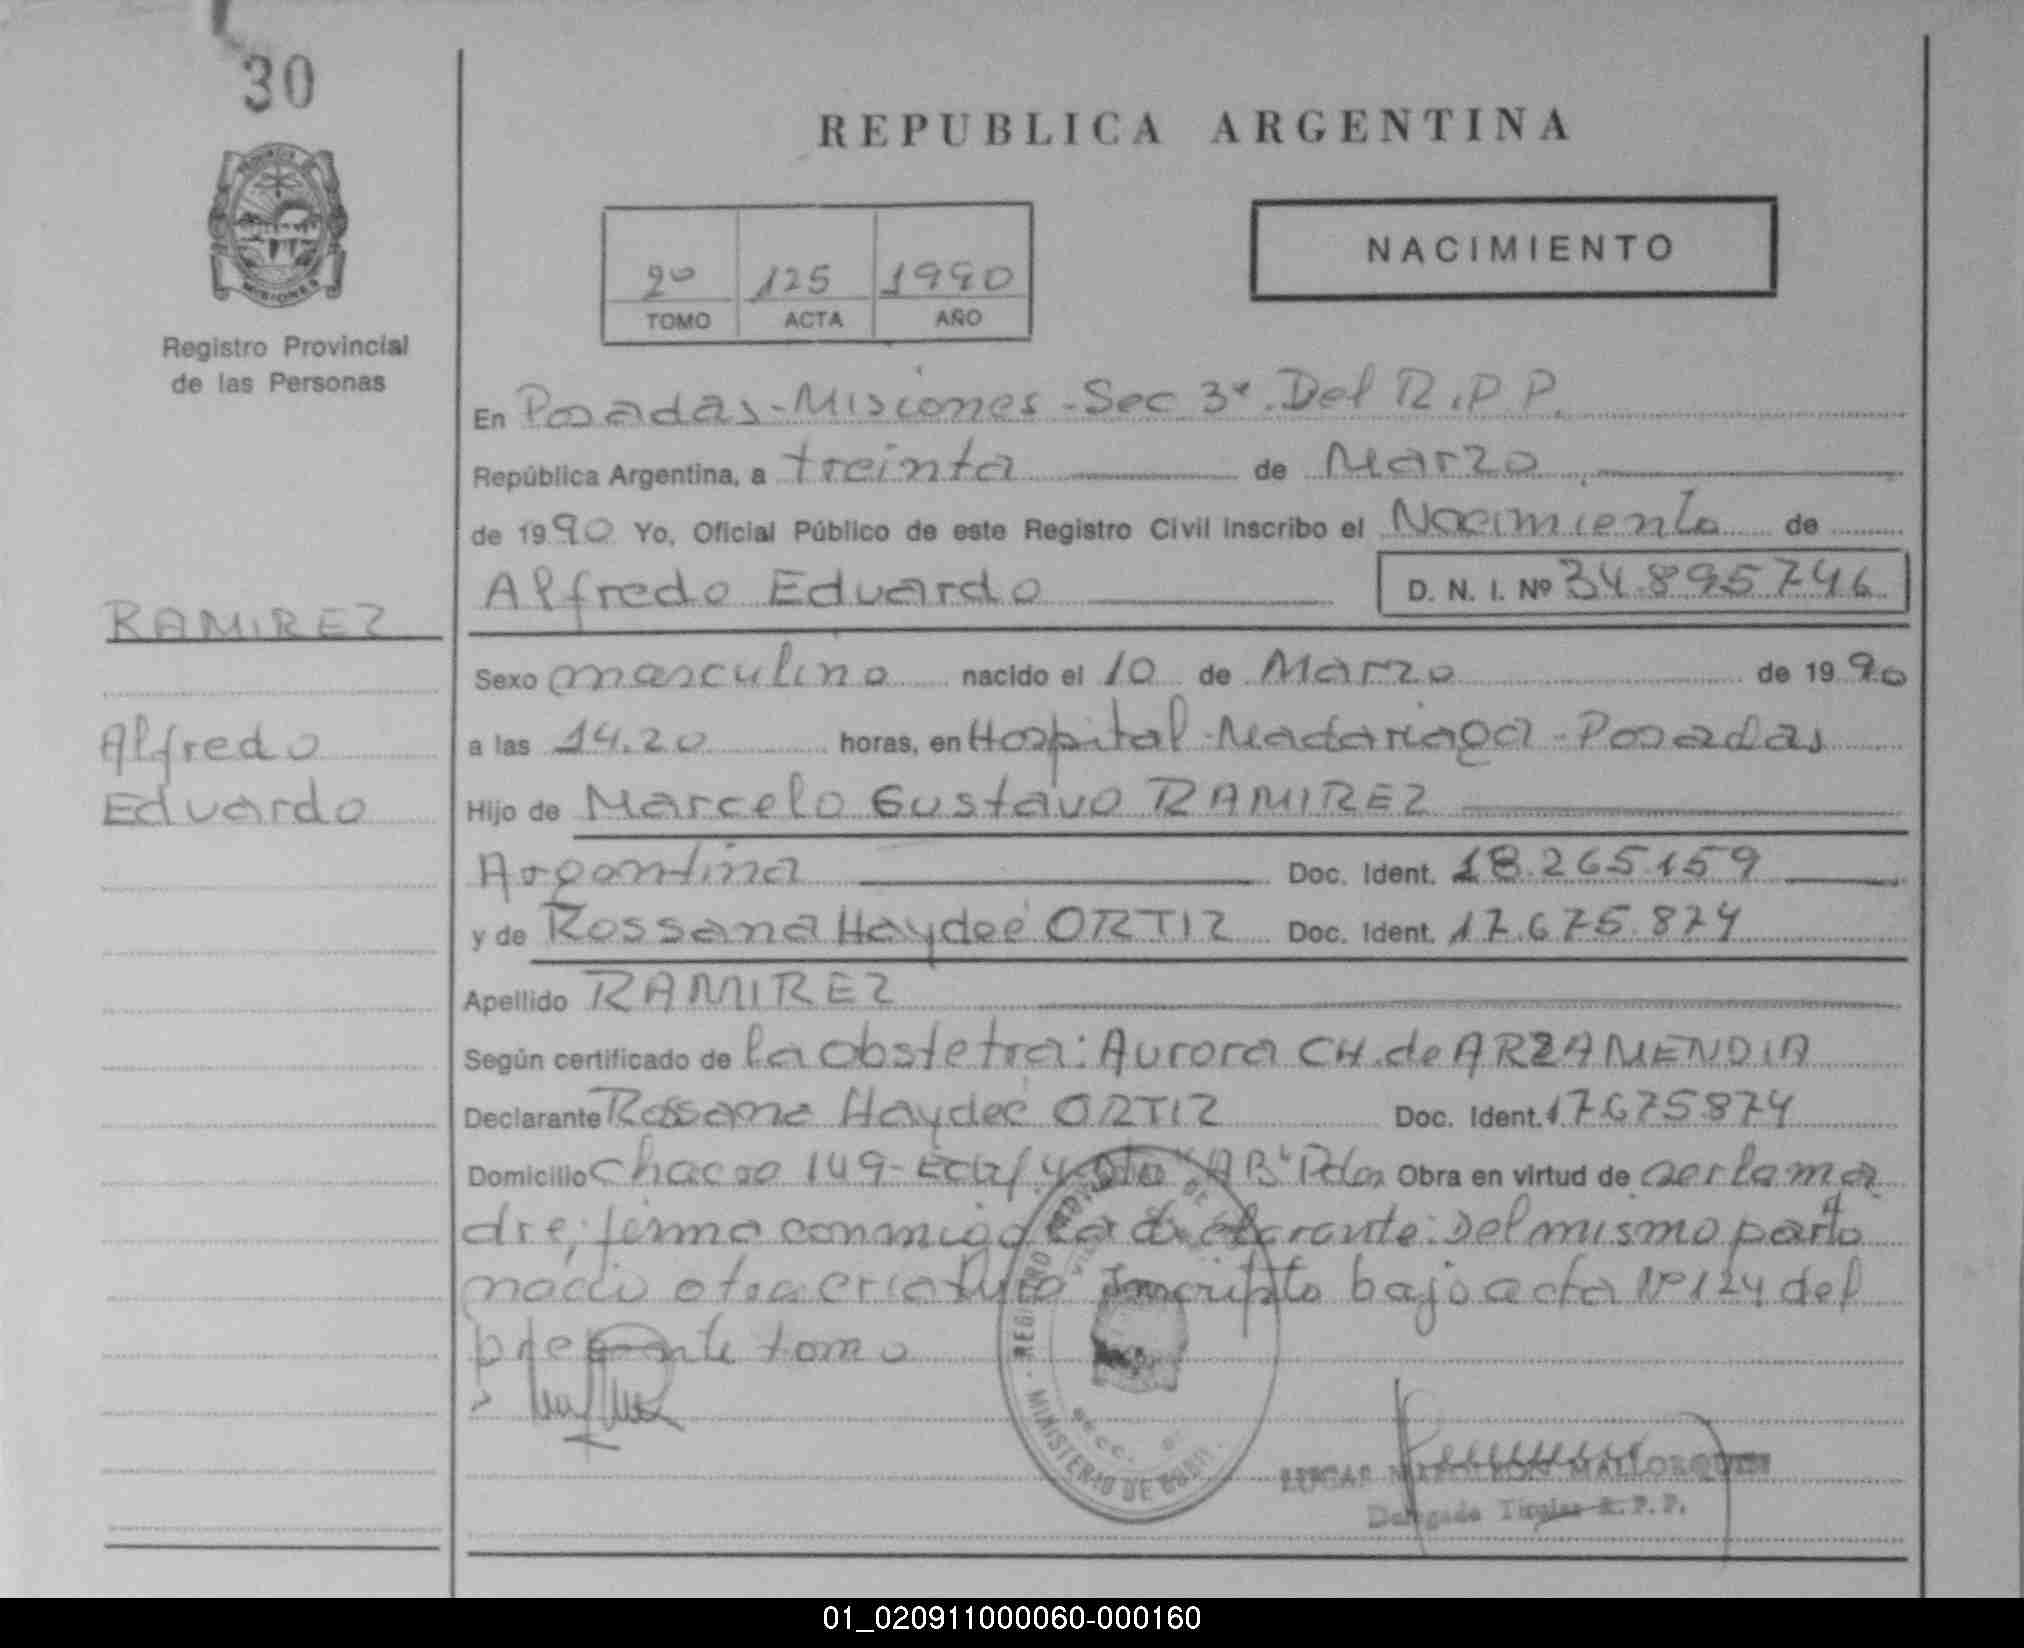 30
REPUBLICA ARGENTINA
NACIMIENTO
2º 125 1990
TOMO ACTA AÑO
MISIONES
Registro Provincial
de las Personas
En Posadas-Misiones-Sec 3ª. Del R.P.P.
República Argentina, a treinta de Marzo
de 1990 Yo, Oficial Público de este Registro Civil inscribo el Nacimiento de
Alfredo Eduardo D. N. I. Nº 34.895746
RAMIREZ
Sexo masculino nacido el 10 de Marzo de 1990
Alfredo
a las 14.20 horas, en Hospital-Madariaga-Posadas
Eduardo
Hijo de Marcelo Gustavo RAMIREZ
Argentina Doc. Ident. 18.265.159
y de Rossana Haydeé ORTIZ Doc. Ident. 17.675.874
Apellido RAMIREZ
Según certificado de la obstetra: Aurora CH. de ARZAMENDIA
Declarante Rossana Haydeé ORTIZ Doc. Ident. 17.675874
Domicilio Chacra 149- "AB" Pdas Obra en virtud de ser la ma
dre, firma conmigo la declarante: Del mismo parto
nació otra criatura inscripto bajo acta Nº 124 del
presente tomo
REGISTRO DE
MINISTERIO DE GOB
SECC.
MALLORQUIN
Delegado Titular R.P.P.
01_020911000060-000160